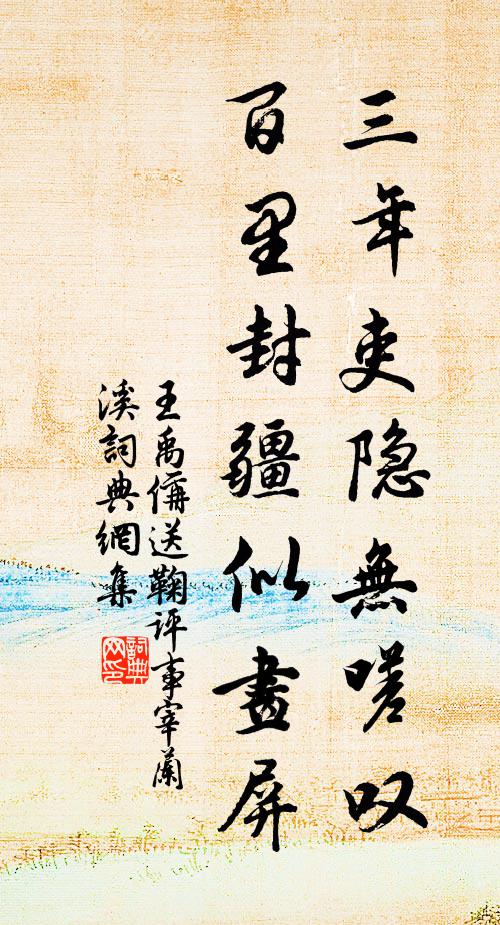 三年吏隐無嗟叹
百里封疆似畫屏
王禹偁送鞠評事宰蘭
溪詞典網集
詞典
网印